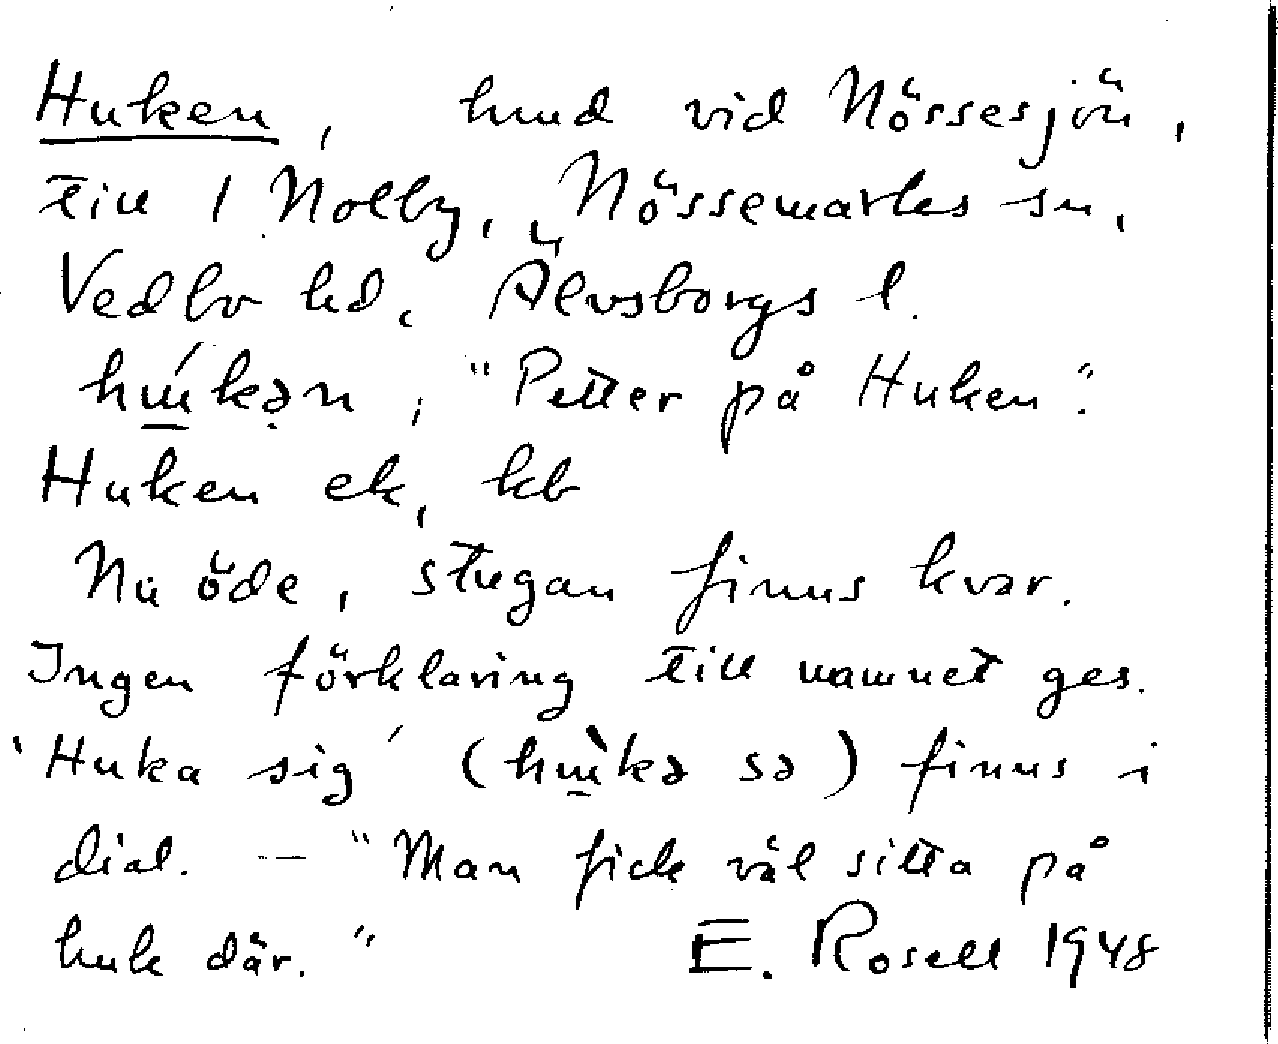 Huken, hmd vid Nössesjön,
till 1 Nolby, Nössemarks sn,
Vedbo hd, Älvsborgs l.
hɯ́kən, "Petter på Huken".
Huken ek, kb
Nu öde, stugan finns kvar.
Ingen förklaring till namnet ges.
'Huka sig' (hɯ̀kə sə) finns i
dial. — "Man fick väl sitta på
huk där." E. Rosell 1948